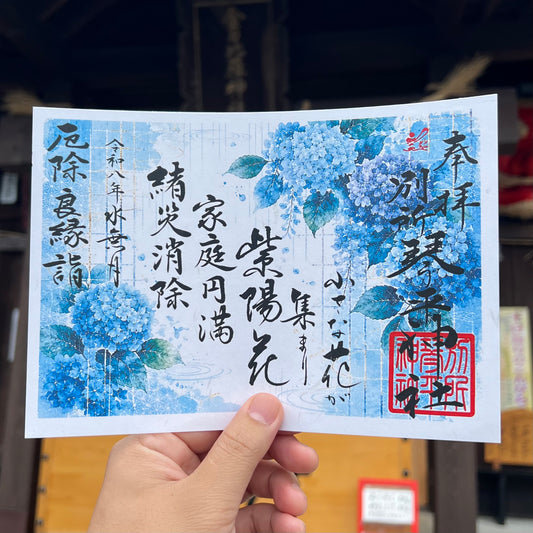 奉拝
別所琴平神社
小さな花が
集まり
紫陽花
家庭円満
諸災消除
令和八年水無月
厄除良縁詣